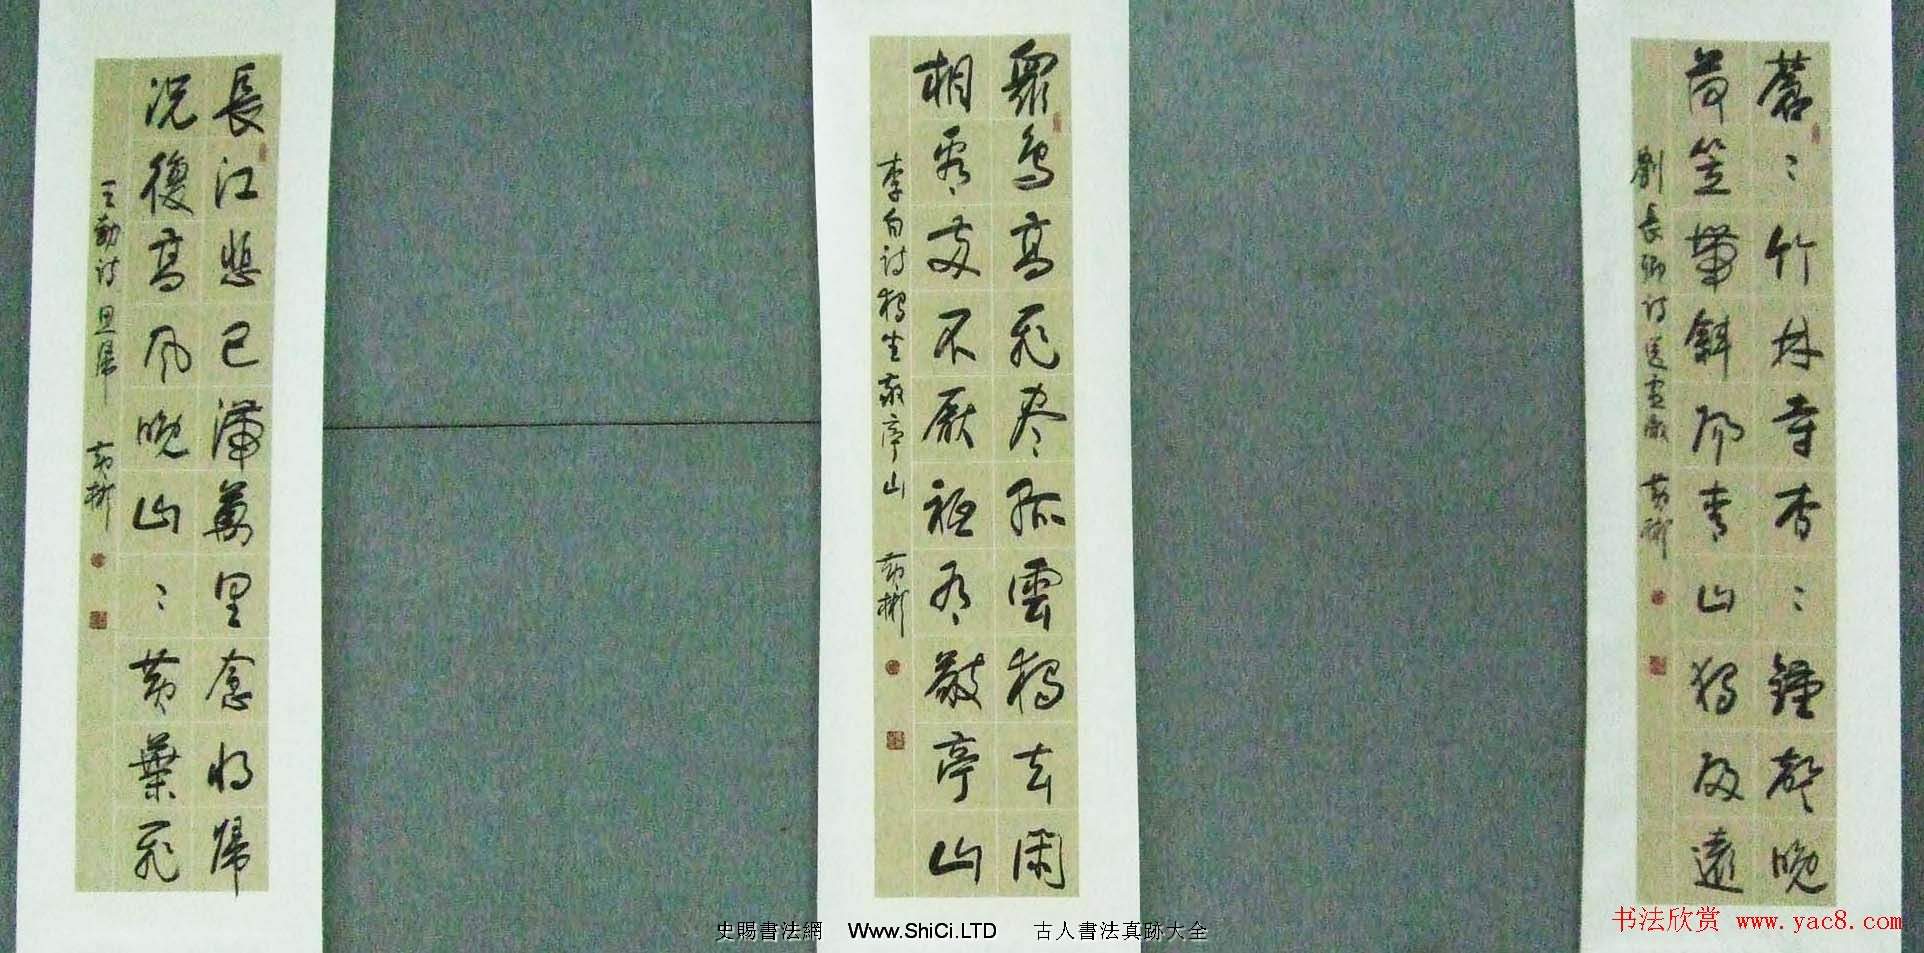 蒼〻竹林寺杳〻鐘聲晚
荷笠帶斜陽青山獨歸遠
劉長卿詩送靈澈 黃彬
眾鳥高飛盡孤雲獨去閑
相看兩不厭祗有敬亭山
李白詩獨坐敬亭山 黃彬
長江悲已滯萬里念將歸
況復高風晚山〻黃葉飛
王勃詩思歸 黃彬
史賜書法網 Www.ShiCi.LTD 古人書法真跡大全
书法欣赏 www.yac8.com